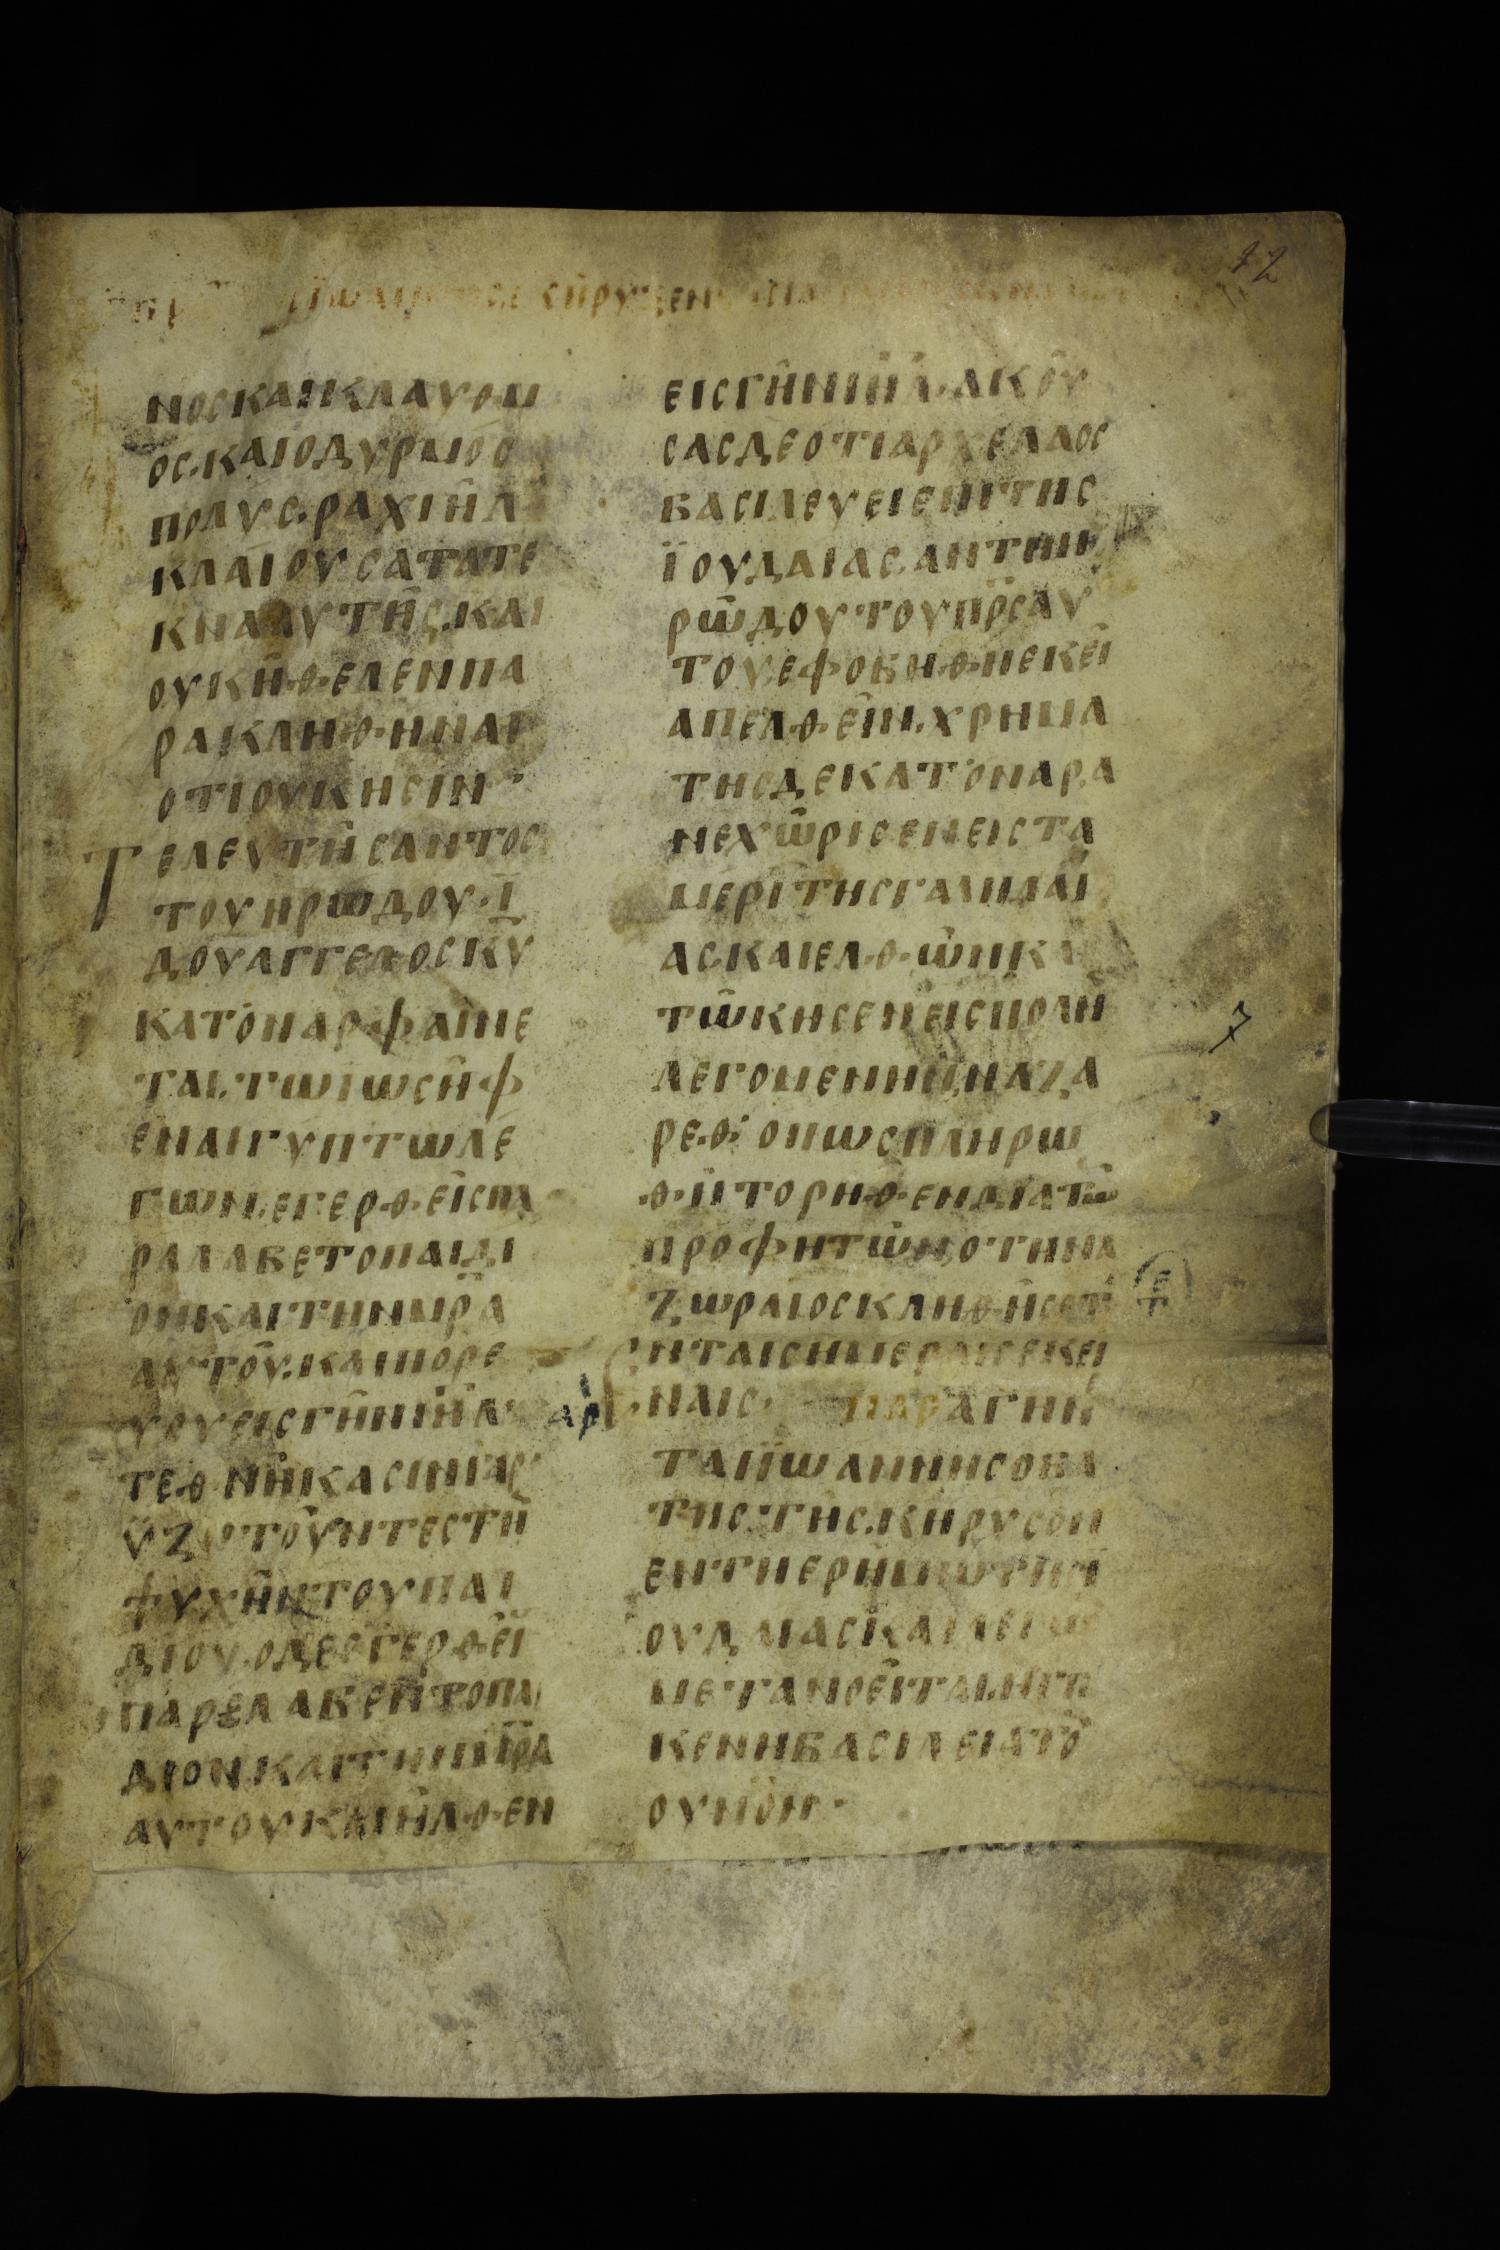 72
ΝΟΣΚΑΙΚΛΑΥΘΜ
ΟΣ·ΚΑΙΟΔΥΡΜΟΣΟ
ΠΟΛΥΣ·ΡΑΧΙΗΛ
ΚΛΑΙΟΥΣΑΤΑΤΕ
ΚΝΑΑΥΤΗΣ·ΚΑΙ
ΟΥΚΗΘΕΛΕΝΠΑ
ΡΑΚΛΗΘΗΝΑΙ
ΟΤΙΟΥΚΗΣΙΝ·
ΤΕΛΕΥΤΗΣΑΝΤΟΣ
ΤΟΥΗΡΩΔΟΥ·Ι
ΔΟΥΑΓΓΕΛΟΣΚΥ
ΚΑΤΟΝΑΡ·ΦΑΙΝΕ
ΤΑΙ·ΤΩΙΩΣΗΦ
ΕΝΑΙΓΥΠΤΩΛΕ
ΓΩΝ·ΕΓΕΡΘΕΙΣΠΑ
ΡΑΛΑΒΕΤΟΠΑΙΔΙ
ΟΝΚΑΙΤΗΝΜΡΑ
ΑΥΤΟΥ·ΚΑΙΠΟΡΕ
ΥΟΥΕΙΣΓΗΝΙΗΛ·
ΤΕΘΝΗΚΑΣΙΝΓΑΡ
ΥΖΗΤΟΥΝΤΕΣΤΗ
ΨΥΧΗΝΤΟΥΠΑΙ
ΔΙΟΥ·ΟΔΕΕΓΕΡΘΕΙ
ΠΑΡΕΛΑΒΕΝΤΟΠΑΙ
ΔΙΟΝ·ΚΑΙΤΗΝΜΡΑ
ΑΥΤΟΥΚΑΙΗΛΘΕΝ
ΕΙΣΓΗΝΙΗΛ·ΑΚΟΥ
ΣΑΣΔΕΟΤΙΑΡΧΕΛΑΟΣ
ΒΑΣΙΛΕΥΕΙΕΠΙΤΗΣ
ΪΟΥΔΑΙΑΣ·ΑΝΤΙΗ
ΡΩΔΟΥΤΟΥΠΡΣΑΥ
ΤΟΥ·ΕΦΟΒΗΘΗΕΚΕΙ
ΑΠΕΛΘΕΙΝ·ΧΡΗΜΑ
ΤΗΣΔΕΚΑΤΟΝΑΡΑ
ΝΕΧΩΡΙΣΕΝΕΙΣΤΑ
ΜΕΡΙΤΗΣΓΑΛΗΛΑΙ
ΑΣ·ΚΑΙΕΛΘΩΝΚΑ
ΤΩΚΗΣΕΝΕΙΣΠΟΛΗ
ΛΕΓΟΜΕΝΗΝΝΑΖΑ
ΡΕΘ·ΟΠΩΣΠΛΗΡΩ
ΘΗΤΟΡΗΘΕΝΔΙΑΤΩ
ΠΡΟΦΗΤΩΝ·ΟΤΗΝΑ
ΖΩΡΑΙΟΣΚΛΗΘΗΣΕΤ
ΝΤΑΙΣΗΜΕΡΑΙΣΕΚΕΙ
ΝΑΙΣ· ΠΑΡΑΓΙΝΕ
ΤΑΙΪΩΑΝΝΗΣΟΒΑ
ΤΗΣΤΗΣ·ΚΗΡΥΣΟΝ
ΕΝΤΗΕΡΗΜΩΤΗΣΙ
ΟΥΔΑΙΑΣ·ΚΑΙΛΕΓΩ
ΜΕΤΑΝΟΕΙΤΑΙ·ΗΓΓΙ
ΚΕΝΗΒΑΣΙΛΕΙΑΤΩ
ΟΥΝΟΝ·